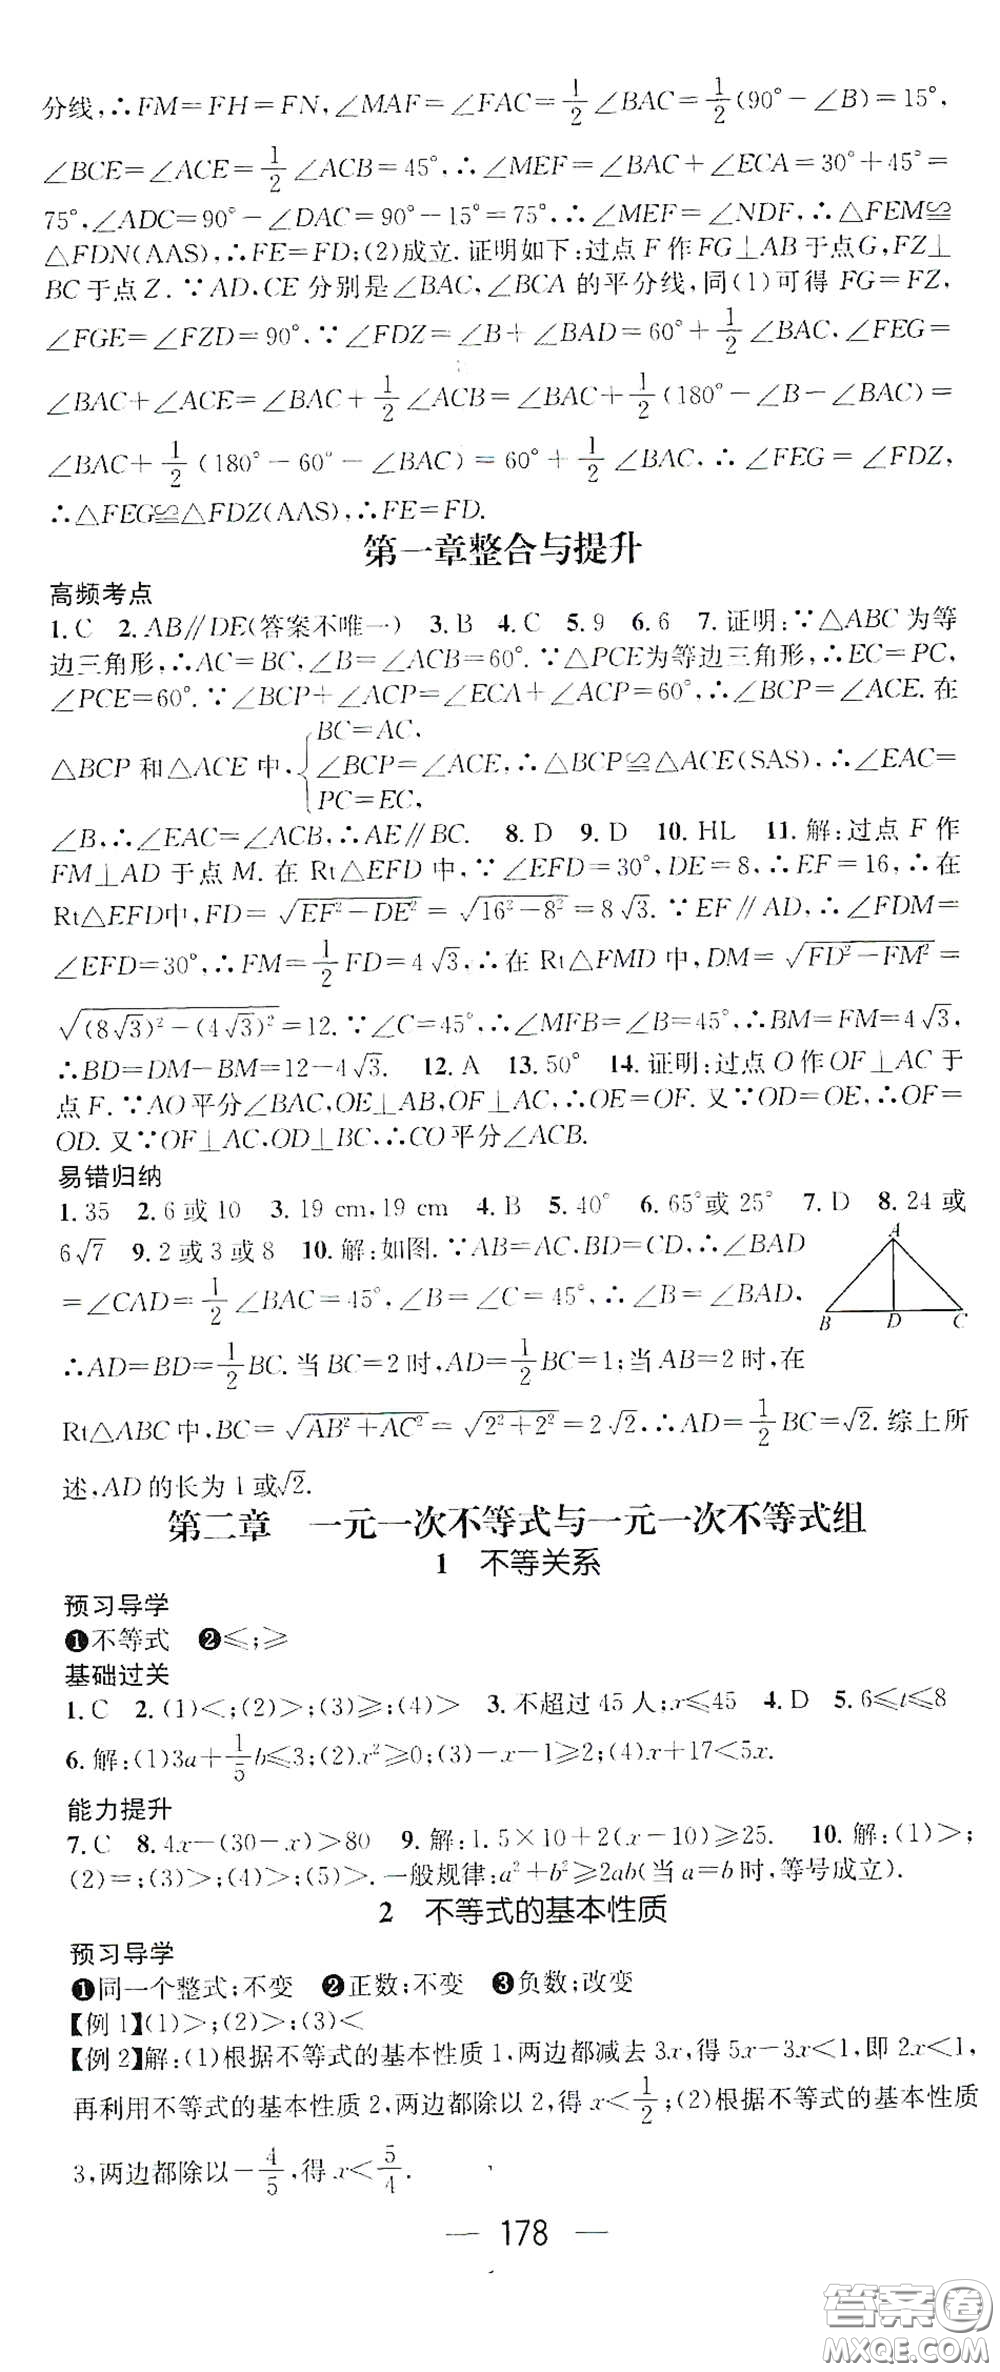 分线,∴FM=FH=FN,∠MAF=∠FAC=1/2∠BAC=1/2(90°-∠B)=15°,
∠BCE=∠ACE=1/2∠ACB=45°,∴∠MEF=∠BAC+∠ECA=30°+45°=
75°,∠ADC=90°-∠DAC=90°-15°=75°,∴∠MEF=∠NDF,∴△FEM≌
△FDN(AAS),∴FE=FD;(2)成立.证明如下:过点F作FG⊥AB于点G,FZ⊥
BC于点Z.∵AD,CE分别是∠BAC,∠BCA的平分线,同(1)可得FG=FZ,
∠FGE=∠FZD=90°.∵∠FDZ=∠B+∠BAD=60°+1/2∠BAC,∠FEG=
∠BAC+∠ACE=∠BAC+1/2∠ACB=∠BAC+1/2(180°-∠B-∠BAC)=
∠BAC+1/2(180°-60°-∠BAC)=60°+1/2∠BAC,∴∠FEG=∠FDZ,
∴△FEG≌△FDZ(AAS),∴FE=FD.
第一章整合与提升
高频考点
1.C 2.AB∥DE(答案不唯一) 3.B 4.C 5.9 6.6 7.证明:∵△ABC为等
边三角形,∴AC=BC,∠B=∠ACB=60°.∵△PCE为等边三角形,∴EC=PC,
∠PCE=60°.∵∠BCP+∠ACP=∠ECA+∠ACP=60°,∴∠BCP=∠ACE.在
△BCP和△ACE中,{BC=AC, ∠BCP=∠ACE, PC=EC, ∴△BCP≌△ACE(SAS),∴∠EAC=
∠B,∴∠EAC=∠ACB,∴AE∥BC. 8.D 9.D 10.HL 11.解:过点F作
FM⊥AD于点M.在Rt△EFD中,∵∠EFD=30°,DE=8,∴EF=16,∴在
Rt△EFD中,FD=√(EF²-DE²)=√(16²-8²)=8√3.∵EF∥AD,∴∠FDM=
∠EFD=30°,∴FM=1/2FD=4√3,∴在Rt△FMD中,DM=√(FD²-FM²)=
√((8√3)²-(4√3)²)=12.∵∠C=45°,∴∠MFB=∠B=45°,∴BM=FM=4√3,
∴BD=DM-BM=12-4√3. 12.A 13.50° 14.证明:过点O作OF⊥AC于
点F.∵AO平分∠BAC,OE⊥AB,OF⊥AC,∴OE=OF.又∵OD=OE,∴OF=
OD.又∵OF⊥AC,OD⊥BC,∴CO平分∠ACB.
易错归纳
1.35 2.6或10 3.19 cm,19 cm 4.B 5.40° 6.65°或25° 7.D 8.24或
6√7 9.2或3或8 10.解:如图.∵AB=AC,BD=CD,∴∠BAD
=∠CAD=1/2∠BAC=45°,∠B=∠C=45°,∴∠B=∠BAD,
A
B D C
∴AD=BD=1/2BC.当BC=2时,AD=1/2BC=1;当AB=2时,在
Rt△ABC中,BC=√(AB²+AC²)=√(2²+2²)=2√2.∴AD=1/2BC=√2.综上所
述,AD的长为1或√2.
第二章 一元一次不等式与一元一次不等式组
1 不等关系
预习导学
❶不等式 ❷≤;≥
基础过关
1.C 2.(1)<;(2)>;(3)≥;(4)> 3.不超过45人;x≤45 4.D 5.6≤t≤8
6.解:(1)3a+1/5b≤3;(2)x²≥0;(3)-x-1≥2;(4)x+17<5x.
能力提升
7.C 8.4x-(30-x)>80 9.解:1.5×10+2(x-10)≥25. 10.解:(1)>;
(2)=;(3)>;(4)>;(5)>.一般规律:a²+b²≥2ab(当a=b时,等号成立).
2 不等式的基本性质
预习导学
❶同一个整式;不变 ❷正数;不变 ❸负数;改变
【例1】(1)>;(2)>;(3)<
【例2】解:(1)根据不等式的基本性质1,两边都减去3x,得5x-3x<1,即2x<1,
再利用不等式的基本性质2,两边都除以2,得x<1/2;(2)根据不等式的基本性质
3,两边都除以-4/5,得x<5/4.
— 178 —
答案圈
MXQE.COM